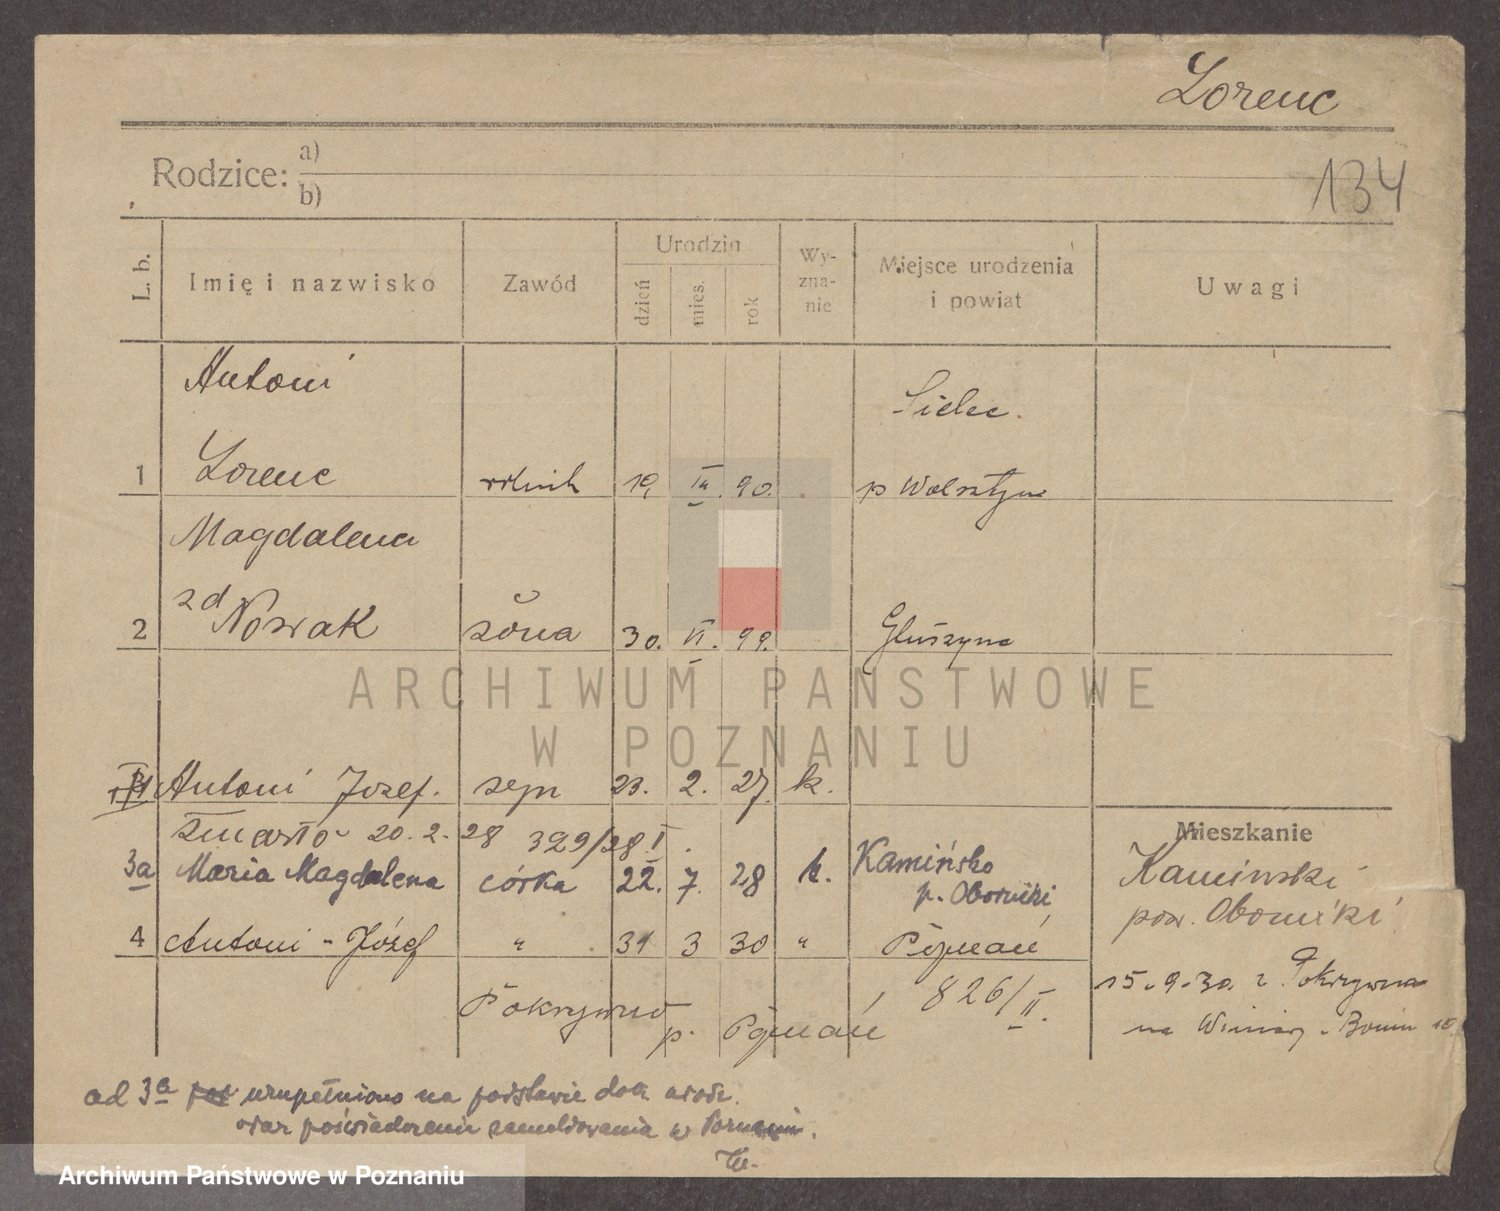 Lorenc
134
Rodzice: a)
b)
L. b.
Imię i nazwisko
Zawód
Urodzin
dzień
mies.
rok
Wy-
zna-
nie
Miejsce urodzenia
i powiat
Uwagi
Antoni
Sielec
1 Lorenc 90. p Wolsztyn
Magdalena
zd
2 Nowak żona 30. VI. 99. Głuszyna
ARCHIWUM PAŃSTWOWE
W POZNANIU
Antoni Jozef. syn 23. 2. 27. k.
zmarło 20. 2. 28 329/28 I.
Mieszkanie
3a Maria Magdalena córka 22. 7. 28 k. Kamińsko
p. Oborniki
Kaminski
pow. Oborniki
4 Antoni - Józef " 31 3 30 " Poznań
15.-9.-30. z Pokrzywna
826/II.
Pokrzywno p. Poznań
na Winiary - Bonin 10
ad 3a uzupełniono na podstawie dok. urodz.
oraz poświadczenia zameldowania w Poznaniu.
Archiwum Państwowe w Poznaniu